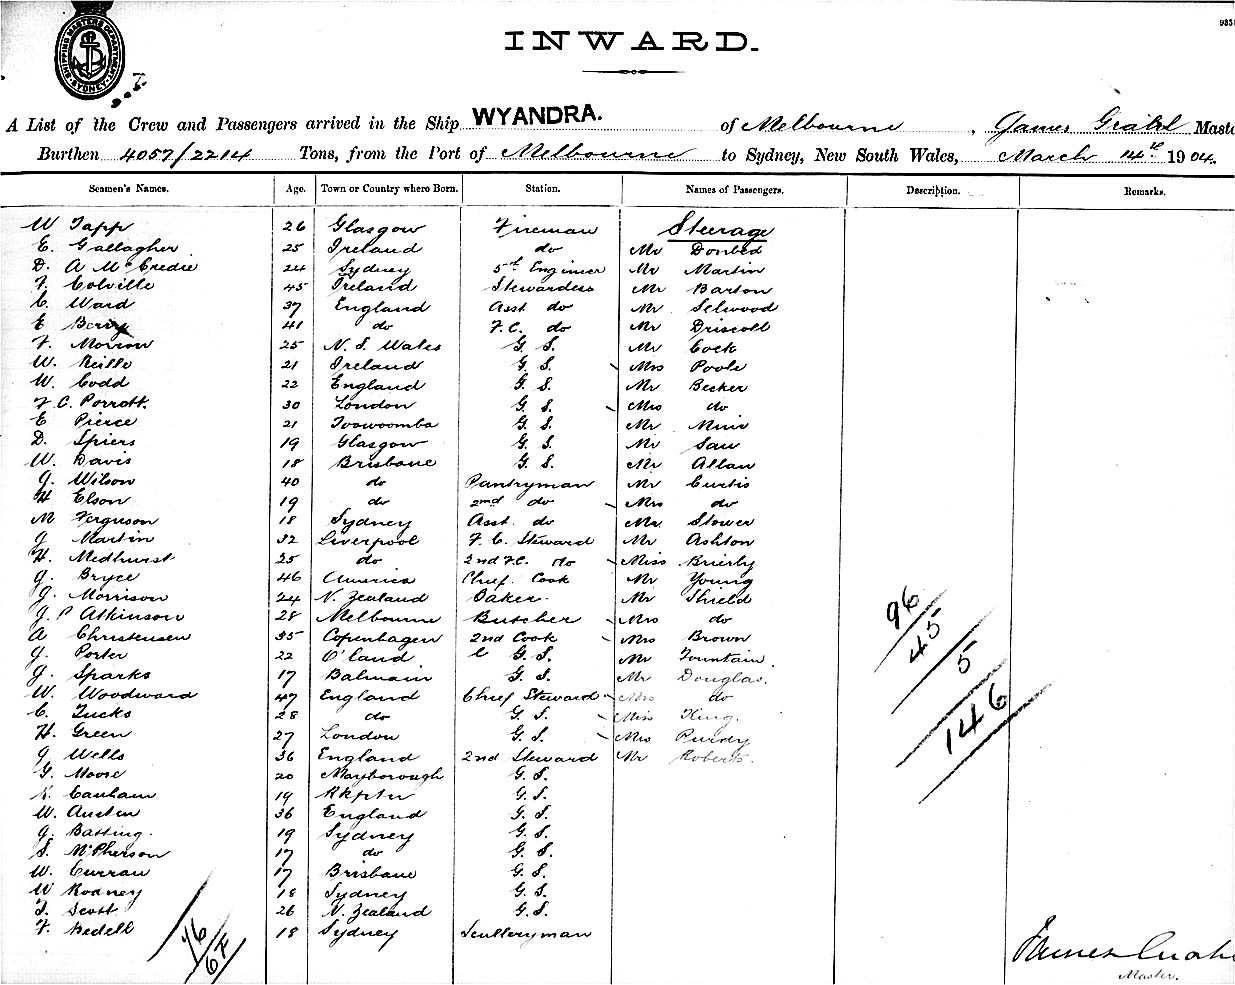 SHIPPING MASTERS DEPARTMENT SYDNEY
INWARD.
A List of the Crew and Passengers arrived in the Ship WYANDRA. of Melbourne, James Maste
Burthen 4057/2214 Tons, from the Port of Melbourne to Sydney, New South Wales, March 14th 1904.
Seamen's Names. Age. Town or Country where Born. Station. Names of Passengers. Description. Remarks.
W Tapp 26 Glasgow Fireman Steerage
E. Gallagher 25 Ireland do Mr
D. A McCredie 24 Sydney 5th Engineer Mr Martin
F. Colville 45 Ireland Stewardess Mr Barton
C. Ward 37 England Asst do Mr Selwood
E Berry 41 do F.C. do Mr Driscoll
F. 25 N. S. Wales G. S. Mr Cock
W. Neille 21 Ireland G. S. Mrs Poole
W. Codd 22 England G. S. Mr Becker
F. C. Porrott 30 London G. S. Mrs do
E Pierce 21 Toowoomba G. S. Mr Muir
D. Spiers 19 Glasgow G. S. Mr
W. Davis 18 Brisbane G. S. Mr Allan
J. Wilson 40 do Pantryman Mr Curtis
H Elson 19 do 2nd do Mrs do
M Ferguson 18 Sydney Asst. do Mr. Stower
J Martin 32 Liverpool F. C. Steward Mr Ashton
H. Medhurst 25 do 2nd F.C. do Miss Brierly
J. Bryce 46 America Chief. Cook Mr Young
J. Morrison 24 N. Zealand Baker. Mr Shield
J. P Atkinson 28 Melbourne Butcher Mrs do
A Christensen 35 Copenhagen 2nd Cook Mrs Brown
J. Porter 22 Q'land G. S. Mr Fountain
J. Sparks 17 Balmain G. S. Mr Douglas.
W. Woodward 47 England Chief Steward Mrs do
C. Tucks 28 do G. S. Miss King.
H. Green 27 London G. S. Mrs Purdy
J Wells 36 England 2nd Steward Mr Roberts.
G. Moore 20 Maryborough G. S.
Canham 19 Rkptn G. S.
W. Austin 36 England G. S.
J. Batting. 19 Sydney G. S.
S. McPherson 17 do G. S.
W. Curran 17 Brisbane G. S.
W Rodney 18 Sydney G. S.
T. Scott 26 N. Zealand G. S.
F. Bedell 18 Sydney Sculleryman
96
45
5
146
76
6F
James
Master.